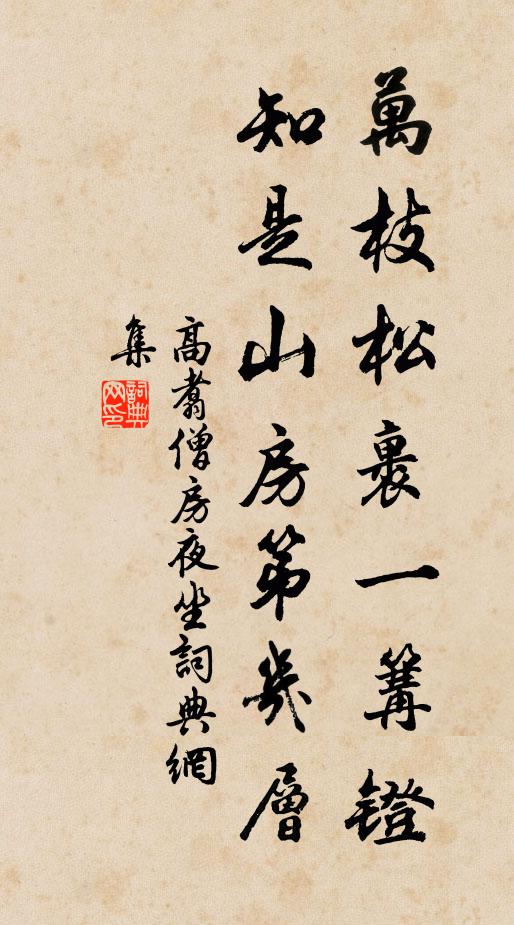 萬枝松裹一篝鐙
知是山房第幾層
高翥僧房夜坐詞典網
集
詞典
网印